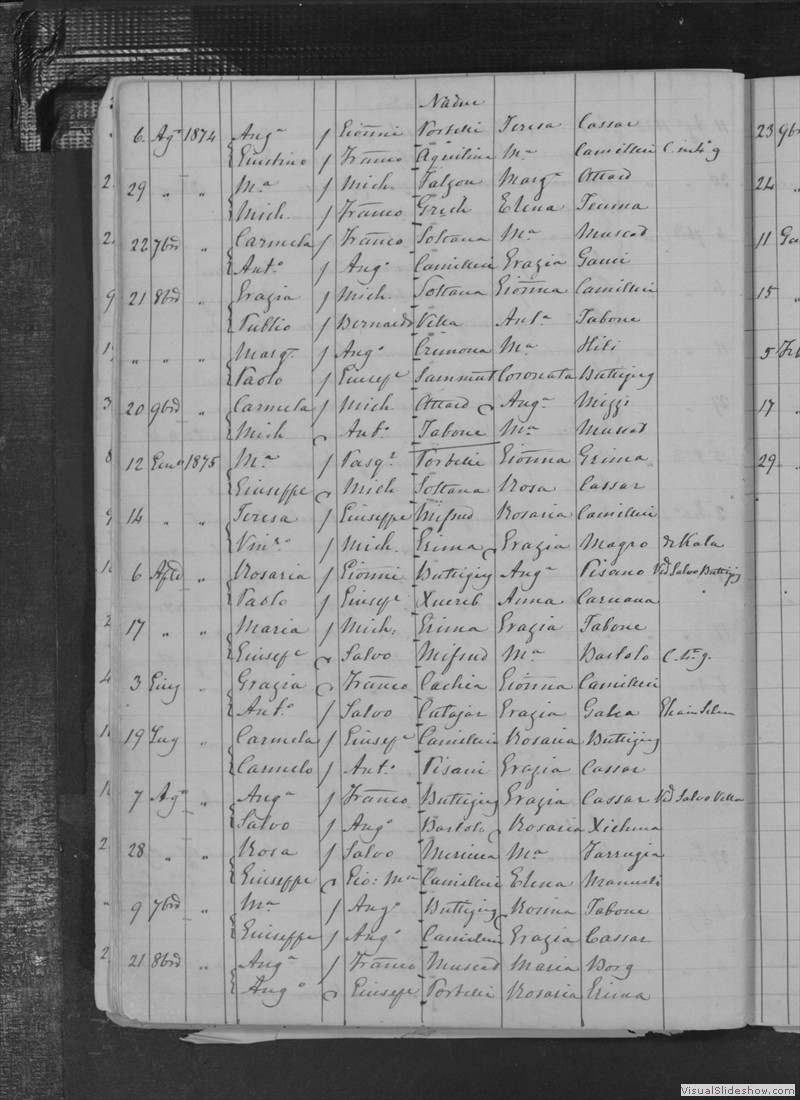 Nadur
6 Agº 1874 Angª / Gionni Portelli Teresa Cassar
Giustino / Franco Aquilina Mª Camilleri
29 " " Mª / Mich. Falzon Margª Attard
Mich. / Franco Grech Elena Teuma
22 7bre " Carmela / Franco Soltana Mª Muscat
Antº / Angº Camilleri Grazia Gauci
21 8bre " Grazia / Mich Soltana Gionna Camilleri
Publio / Bernardo Vella Antª Tabone
" " " Margª / Angº Cremona Mª Hili
Paolo / Giusepe Sammut Coronata Buttigieg
20 9bre " Carmela / Mich Attard Angª Mizzi
Mich Antº Tabone Mª Muscat
12 Genº 1875 Mª / Pasqº Portelli Gionna Grima
Giuseppe Mich Soltana Rosa Cassar
14 " " Teresa / Giuseppe Mifsud Rosaria Camilleri
/ Mich. Grima Grazia Magro di Kala
6 " Rosaria / Gionni Buttigieg Angª Pisano Ved Salvo Buttigieg
Paolo / Giusepe Xuereb Anna Caruana
17 " " Maria / Mich: Grima Grazia Tabone
Giusepe Salvo Mifsud Mª Bartolo
3 Giug " Grazia Franco Cachia Gionna Camilleri
Antº / Salvo Cutajar Grazia Galea
19 Lug " Carmela / Giusepe Camilleri Rosaria Buttigieg
Carmelo / Antº Pisani Grazia Cassar
7 Agº " Angª / Franco Buttigieg Grazia Cassar Ved Salvo Vella
Salvo / Angº Bartolo Rosaria
28 " " Rosa / Salvo Mª Farrugia
Giuseppe Gio: Mª Camilleri Elena
9 7bre " Mª / Angº Buttigieg Rosina Tabone
Giuseppe / Angº Camilleri Grazia Cassar
21 8bre " Angª / Franco Muscat Maria Borg
Angº Giusepe Portelli Rosaria Grima
23 9b
24 "
11
15 "
5
17 "
29 "
VisualSlideshow.com